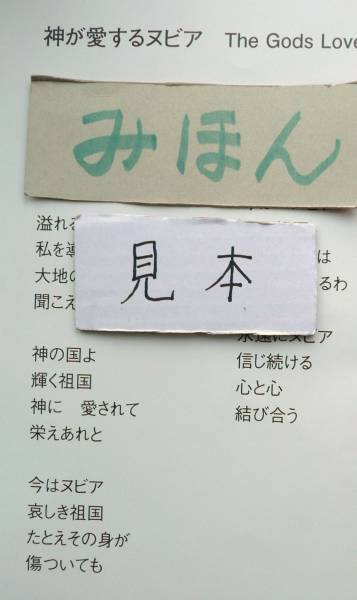 神が愛するヌビア The Gods Love
みほん
見本
溢れ
私を
大地の
聞こえ
神の国よ
輝く祖国
神に 愛されて
栄えあれと
今はヌビア
哀しき祖国
たとえその身が
傷ついても
は
るわ
永遠にヌビア
信じ続ける
心と心
結び合う